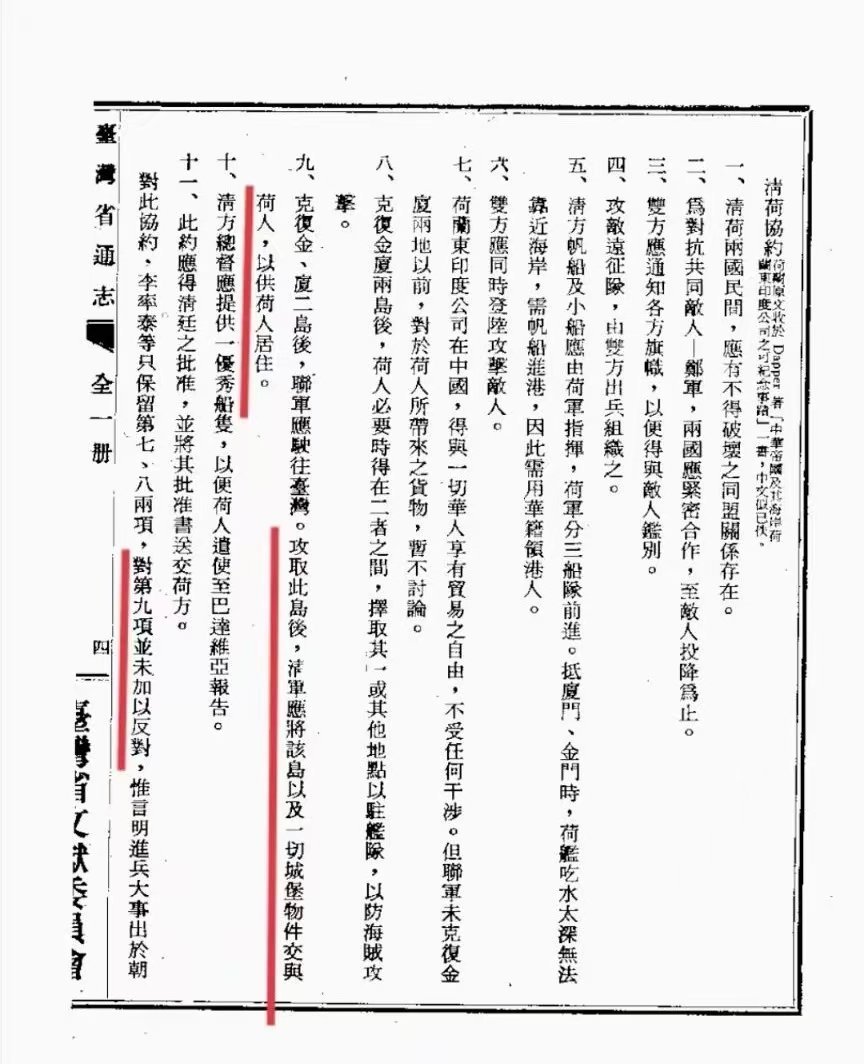 清荷協約荷蘭原文收於 Dapper 著「中華帝國及其海岸荷
蘭東印度公司之可紀念事蹟」一書,中文似已佚。
一、清荷兩國民間,應有不得破壞之同盟關係存在。
二、爲對抗共同敵人—鄭軍,兩國應緊密合作,至敵人投降爲止。
三、雙方應通知各方旗幟,以便得與敵人鑑別。
四、攻敵遠征隊,由雙方出兵組織之。
五、清方帆船及小船應由荷軍指揮,荷軍分三船隊前進。抵廈門、金門時,荷艦吃水太深無法
靠近海岸,需帆船進港,因此需用華籍領港人。
六、雙方應同時登陸攻擊敵人。
七、荷蘭東印度公司在中國,得與一切華人享有貿易之自由,不受任何干涉。但聯軍未克復金
廈兩地以前,對於荷人所帶來之貨物,暫不討論。
八、克復金廈兩島後,荷人必要時得在二者之間,擇取其一或其他地點以駐艦隊,以防海賊攻
擊。
九、克復金、廈二島後,聯軍應駛往臺灣。攻取此島後,清軍應將該島以及一切城堡物件交與
荷人,以供荷人居住。
十、清方總督應提供一優秀船隻,以便荷人遣使至巴達維亞報告。
十一、此約應得清廷之批准,並將其批准書送交荷方。
對此協約,李率泰等只保留第七、八兩項,對第九項並未加以反對,惟言明進兵大事出於朝
臺灣省通志 全一册 四 臺灣省文獻委員會